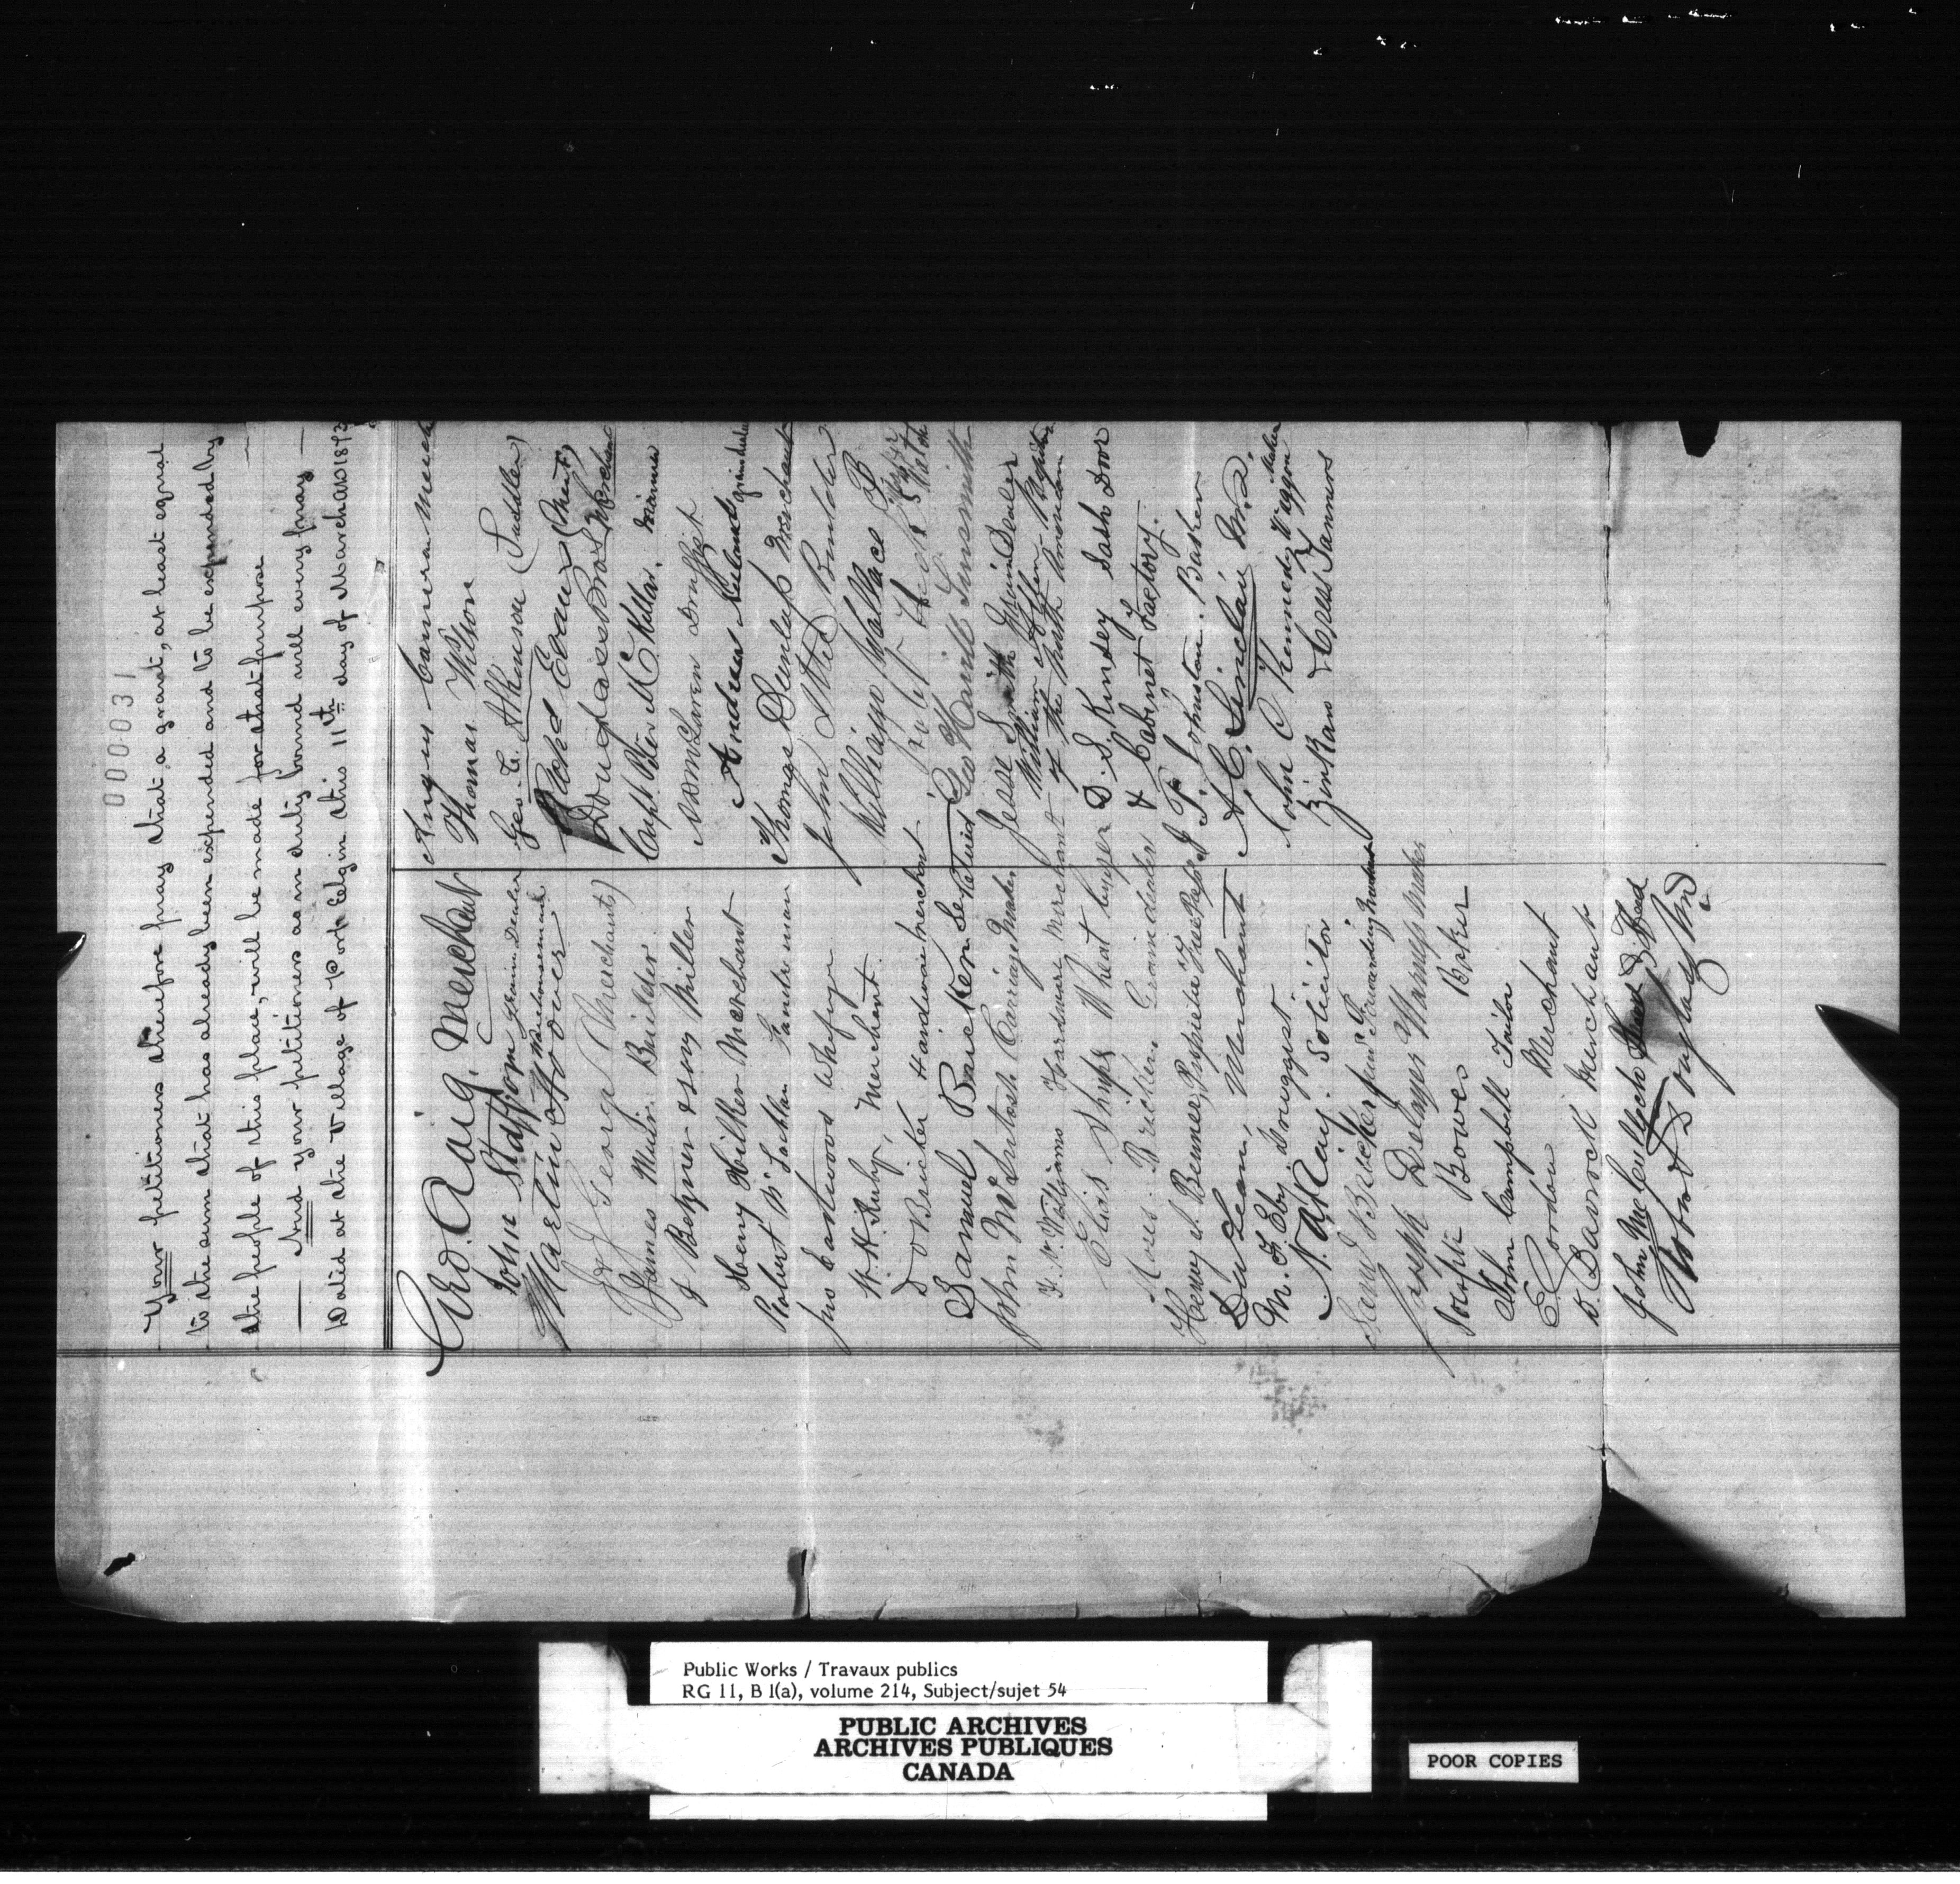 000031
Your petitioners therefore pray that a grant, at least equal
to the sum that has already been expended and to be expended by
the people of this place, will be made for that purpose
And your petitioners as in duty bound will every pray
Dated at the Village of Port Elgin this 11th day of March AD 1873
Geo. Craig. Merchant
John Stafford Grain Dealer
& Warehouseman
Martin Hoover
George (Merchants)
James Muir Builder
Betzner & Sons Miller
Henry Hilker Merchant
Robert McLachlan
Jno Eastwood
W. H. Ruby, Merchant
D Bricker Hardware Merchant
Samuel Bricker Senr
John McIntosh Carriage Maker
Williams Hardware Merchant
Elias Shipe Wheat buyer
Moses Bricker. Grain dealer
Henry Benner, Proprietor
Merchant
M. F. Eby. Druggist.
N. A. Ray. Solicitor
Bricker Forwarding
Joseph Harness Maker
Joseph Bowes
John Campbell Tailor
Gordon Merchant
D. Darroch Merchant
John McCulloch
Robert Douglas
Angus Cameron Merch
Thomas Wilson
Geo. E. Atkenson (Saddler)
Richd E. Evans
Douglass Bros Merchant
Capt. Peter McKellar. Mariner
McLaren Druggist
Andrew
Thomas Dunlap Merchant
John Builder
William Wallace
Geo Gunsmith
Jesse Smith Grain Dealer
William
of the North American
D. S. Kinsey Sash Door
& Cabinet Factory.
Johnston. Baker
A. C. Sinclair M.D.
John C Kennedy Waggon Maker
Zinkann & Cress Tanners
Public Works / Travaux publics
RG 11, B 1(a), volume 214, Subject/sujet 54
PUBLIC ARCHIVES
ARCHIVES PUBLIQUES
CANADA
POOR COPIES